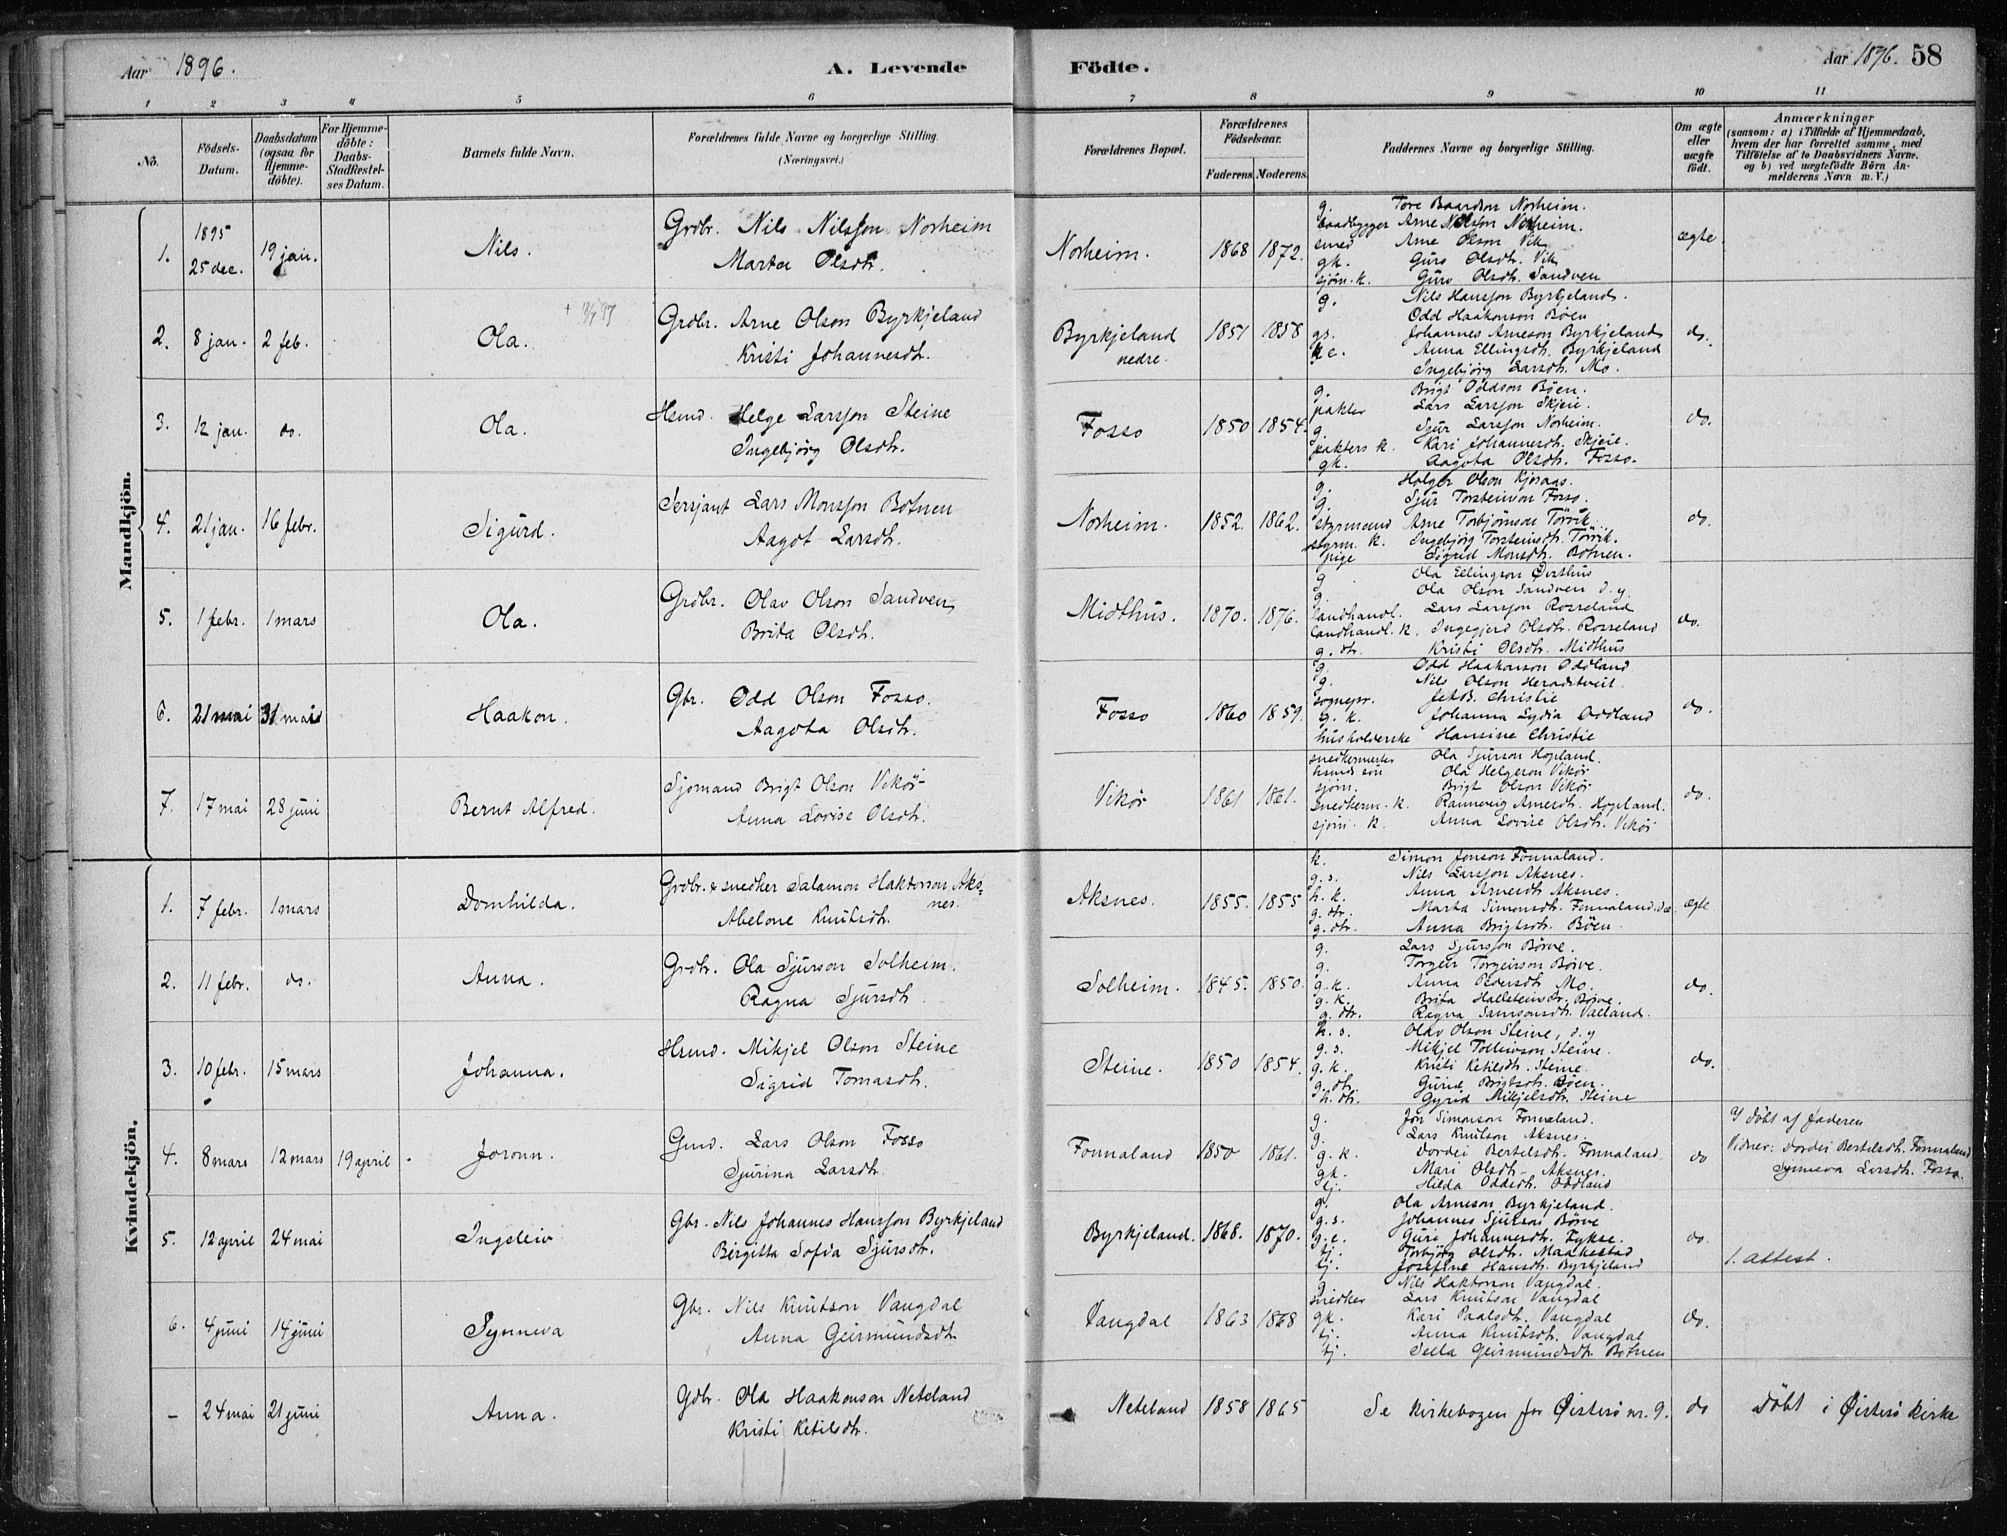 Aar 1896. A. Levende Födte. Aar 1896. 58
1 2 3 4 5 6 7 8 9 10 11
No. Födsels-Datum. Daabsdatum (ogsaa for Hjemme-döbte). For Hjemme-döbte: Daabs-Stadfæstel-ses Datum. Barnets fulde Navn. Forældrenes fulde Navne og borgerlige Stilling. (Næringsvei.) Forældrenes Bopæl. Forældrenes Födselsaar. Faderens. Moderens. Faddernes Navne og borgerlige Stilling. Om ægte eller uægte födt. Anmærkninger (saasom: a) i Tilfælde af Hjemmedaab, hvem der har forrettet samme, med Tilföielse af to Daabsvidners Navne, og b) ved uægtefödte Börn An-melderens Navn m. V.)
Mandkjön.
1. 1895 25 dec. 19 jan. Nils. Grdbr. Nils Nilsson Norheim
Marta Olsdtr. Norheim. 1868 1872. ægte
g. Tore Baardson Norheim.
baadbygger Arne Nilsson Norheim.
smed Arne Olson Vik
gk. Guro Olsdtr. Vik
sjöm. k. Guro Olsdtr. Sandven
2. 8 jan. 2 feb. Ola. Grdbr. Arne Olson Byrkjeland
Kristi Johannesdtr. Byrkjeland nedre. 1851 1858 do.
g. Nils Hansson Byrkjeland.
Odd Haakonson Böen
gs. Johannes Arneson Byrkjeland
Anna Ellingsdtr. Byrkjeland
Ingebjörg Larsdtr. Mo.
3. 12 jan. do. Ola. Hsmd. Helge Larsson Steine
Ingebjörg Olsdtr. Fosso 1850 1854. do.
g. Brigt Oddson Böen.
pakter Lars Larsson Skjeie.
g. Sjur Larsson Norheim.
pakters k. Kari Johannesdtr. Skjeie.
gk. Aagota Olsdtr. Fosso.
4. 21 jan. 16 febr. Sigurd. Sersjant Lars Monsson Botnen
Aagot Larsdtr. Norheim. 1852. 1862. do.
g. Holger Olson Kjosaas.
g. Sjur Torsteinson Fosso.
styrmand Arne Torbjörnson Törvik.
styrm. k. Ingebjörg Torsteinsdtr. Törvik.
pige Sigrid Monsdtr. Botnen.
5. 1 febr. 1 mars Ola. Grdbr. Olav Olson Sandven
Brita Olsdtr. Midthus. 1870. 1876. do.
g. Ola Ellingson Östhus
g. Ola Olson Sandven d. y.
landhandl. Lars Larsson Rosseland
landhandl. k. Ingegjerd Olsdtr. Rosseland
g. dtr. Kristi Olsdtr. Midthus
6. 21 mai 31 mai Haakon. Gbr. Odd Olson Fosso.
Aagota Olsdtr. Fosso 1860 1859. do.
g. Odd Haakonson Oddland
g. Nils Olson Heradstveit.
sognepr. Christie
g. k. Johanna Lydia Oddland
husholderske Hansine Christie
7. 17 mai 28 juni Bernt Alfred. Sjömand Brigt Olson Vikör
Anna Lovise Olsdtr. Vikör 1861 1861. do.
snedkermester Ola Sjurson Hopland.
hsmds sön Ola Helgeson Vikör
sjöm. Brigt Olson Vikör
snedkerm. k. Rannveig Arnesdtr. Hopland.
sjöm. k. Anna Lovise Olsdtr. Vikör
Kvindekjön.
1. 7 febr. 1 mars Domhilda. Grdbr. & snedker Salamon Haktorson Aksnes.
Abelone Knutsdtr. Aksnes. 1855. 1855 ægte
k. Simon Jonson Fonnaland.
g. s. Nils Larsson Aksnes.
h. k. Anna Arnesdtr Aksnes.
g. dtr. Marta Simonsdtr. Fonnaland.
g. dtr. Anna Brigtsdtr. Böen.
2. 11 febr. do. Anna. Grdbr. Ola Sjurson Solheim.
Ragna Sjursdtr. Solheim. 1845. 1850. do.
g. Lars Sjursson Börve.
g. Torgeir Torgeirson Börve.
g. k. Anna Pedersdtr Mo.
g. k. Brita Hallsteinsdtr. Börve.
g. dtr. Ragna Samsonsdtr. Valland.
3. 10 febr. 15 mars Johanna. Hsmd. Mikjel Olson Steine
Sigrid Tomasdtr. Steine. 1850 1854. do.
h. s. Olav Olson Steine, d. y
g. s. Mikjel Tolleivson Steine.
g. k. Kristi Ketilsdtr. Steine.
g. dtr. Gurid Brigtsdtr. Böen.
h. dtr. Gyrid Mikjelsdtr. Steine
4. 8 mars 12 mars 19 april Joronn. Gmd. Lars Olson Fosso
Sjurina Larsdtr. Fonnaland 1850 1861. do
g. Jon Simonson Fonnaland.
g. Lars Knutson Aksnes.
g. k. Dordei Bertelsdtr. Fonnaland.
gk. Mari Olsdtr. Aksnes.
tj. Hilda Oddsdtr. Oddland
döbt af faderen
Vidner: Dordei Bertelsdtr. Fonnaland
Synneva Larsdtr. Fosso.
5. 12 april 24 mai Ingeleiv Gbr. Nils Johannes Hansson Byrkjeland
Birgitta Sofia Sjursdtr. Byrkjeland. 1868. 1870. do.
g. Ola Arneson Byrkjeland.
g. s. Johannes Sjurson Börve
g. e. Guri Johannesdtr. Tykse.
tj. Torbjörg Olsdtr. Maakestad
tj. Josefine Hansdtr. Byrkjeland
1. attest.
6. 4 juni 14 juni Synneva Gbr. Nils Knutson Vangdal
Anna Geirmundsdtr Vangdal 1863 1868 do.
g. Nils Haktorson Vangdal.
snedker Lars Knutson Vangdal
gk. Kari Paalsdtr. Vangdal
tj. Anna Knutsdtr. Vangdal
tj. Sella Geirmundsdtr. Botnen
- 24 mai 21 juni Anna. Gdbr. Ola Haakonson Neteland
Kristi Ketilsdtr. Neteland 1858 1865 Se kirkebogen for Öistesö nr. 9. do Döbt i Öistesö kirke